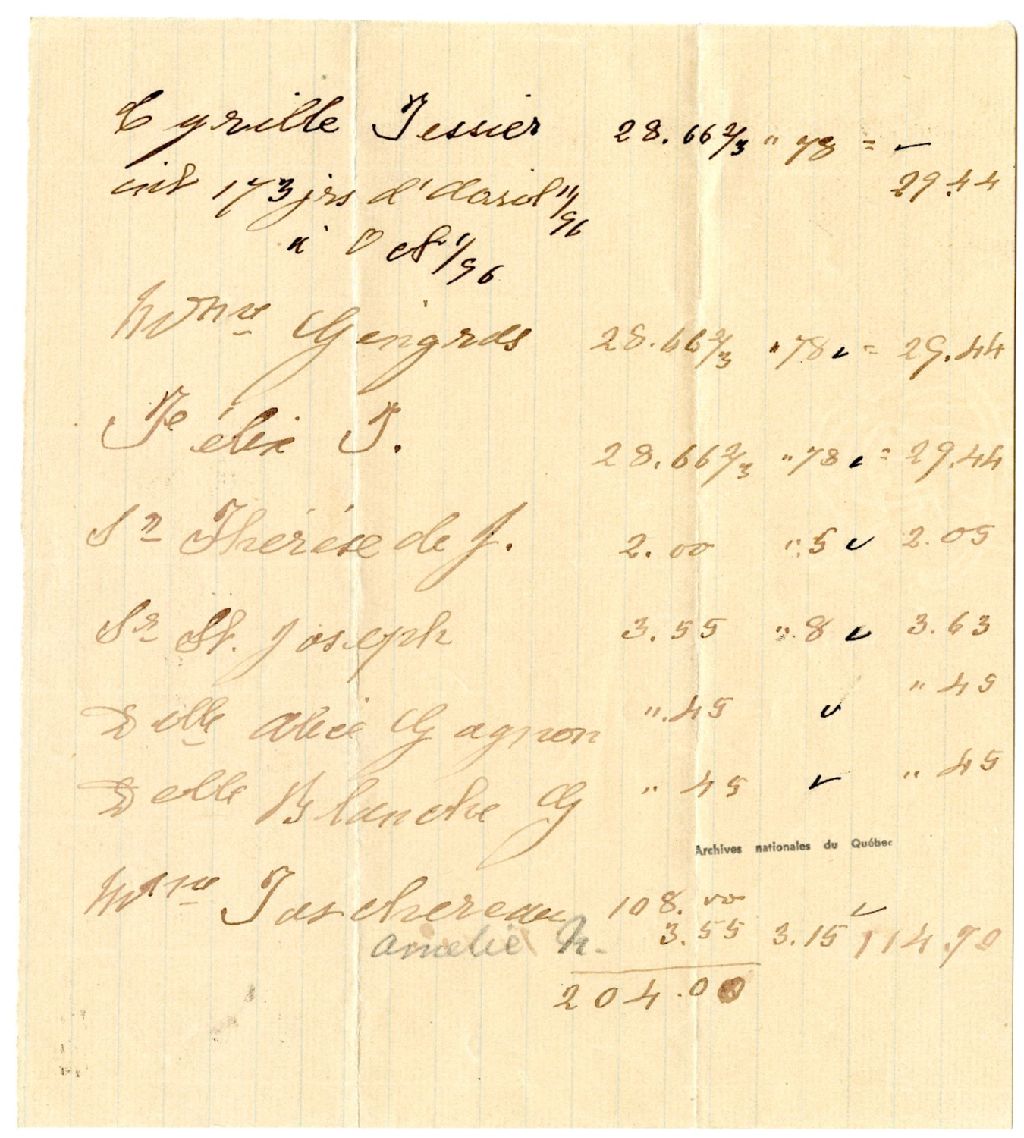 Cyrille Tessier 28.66 2/3 " 78 = ✓
int 173 jrs d'Avril 11/96 29.44
à Oct 1/96
Mme Gingras 28.66 2/3 " 78 ✓ = 29.44
Félix T. 28.66 2/3 " 78 ✓ = 29.44
Sr Thérèse de J. 2.00 " 5 ✓ 2.05
Sr St. Joseph 3.55 " 8 ✓ 3.63
Delle Alice Gagnon " 45 ✓ " 45
Delle Blanche G " 45 ✓ " 45
Archives nationales du Québec
Mme Taschereau 108.00 ✓
Amelie 3.55 3.15 114.70
204.00